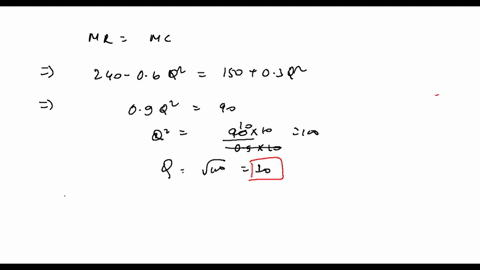 MR = MC
=) 240 - 0.6 Q² = 150 + 0.3 Q²
=) 0.9 Q² = 90
Q² = 90 10 × 10 / 0.9 × 10 = 100
Q = √100 = 10